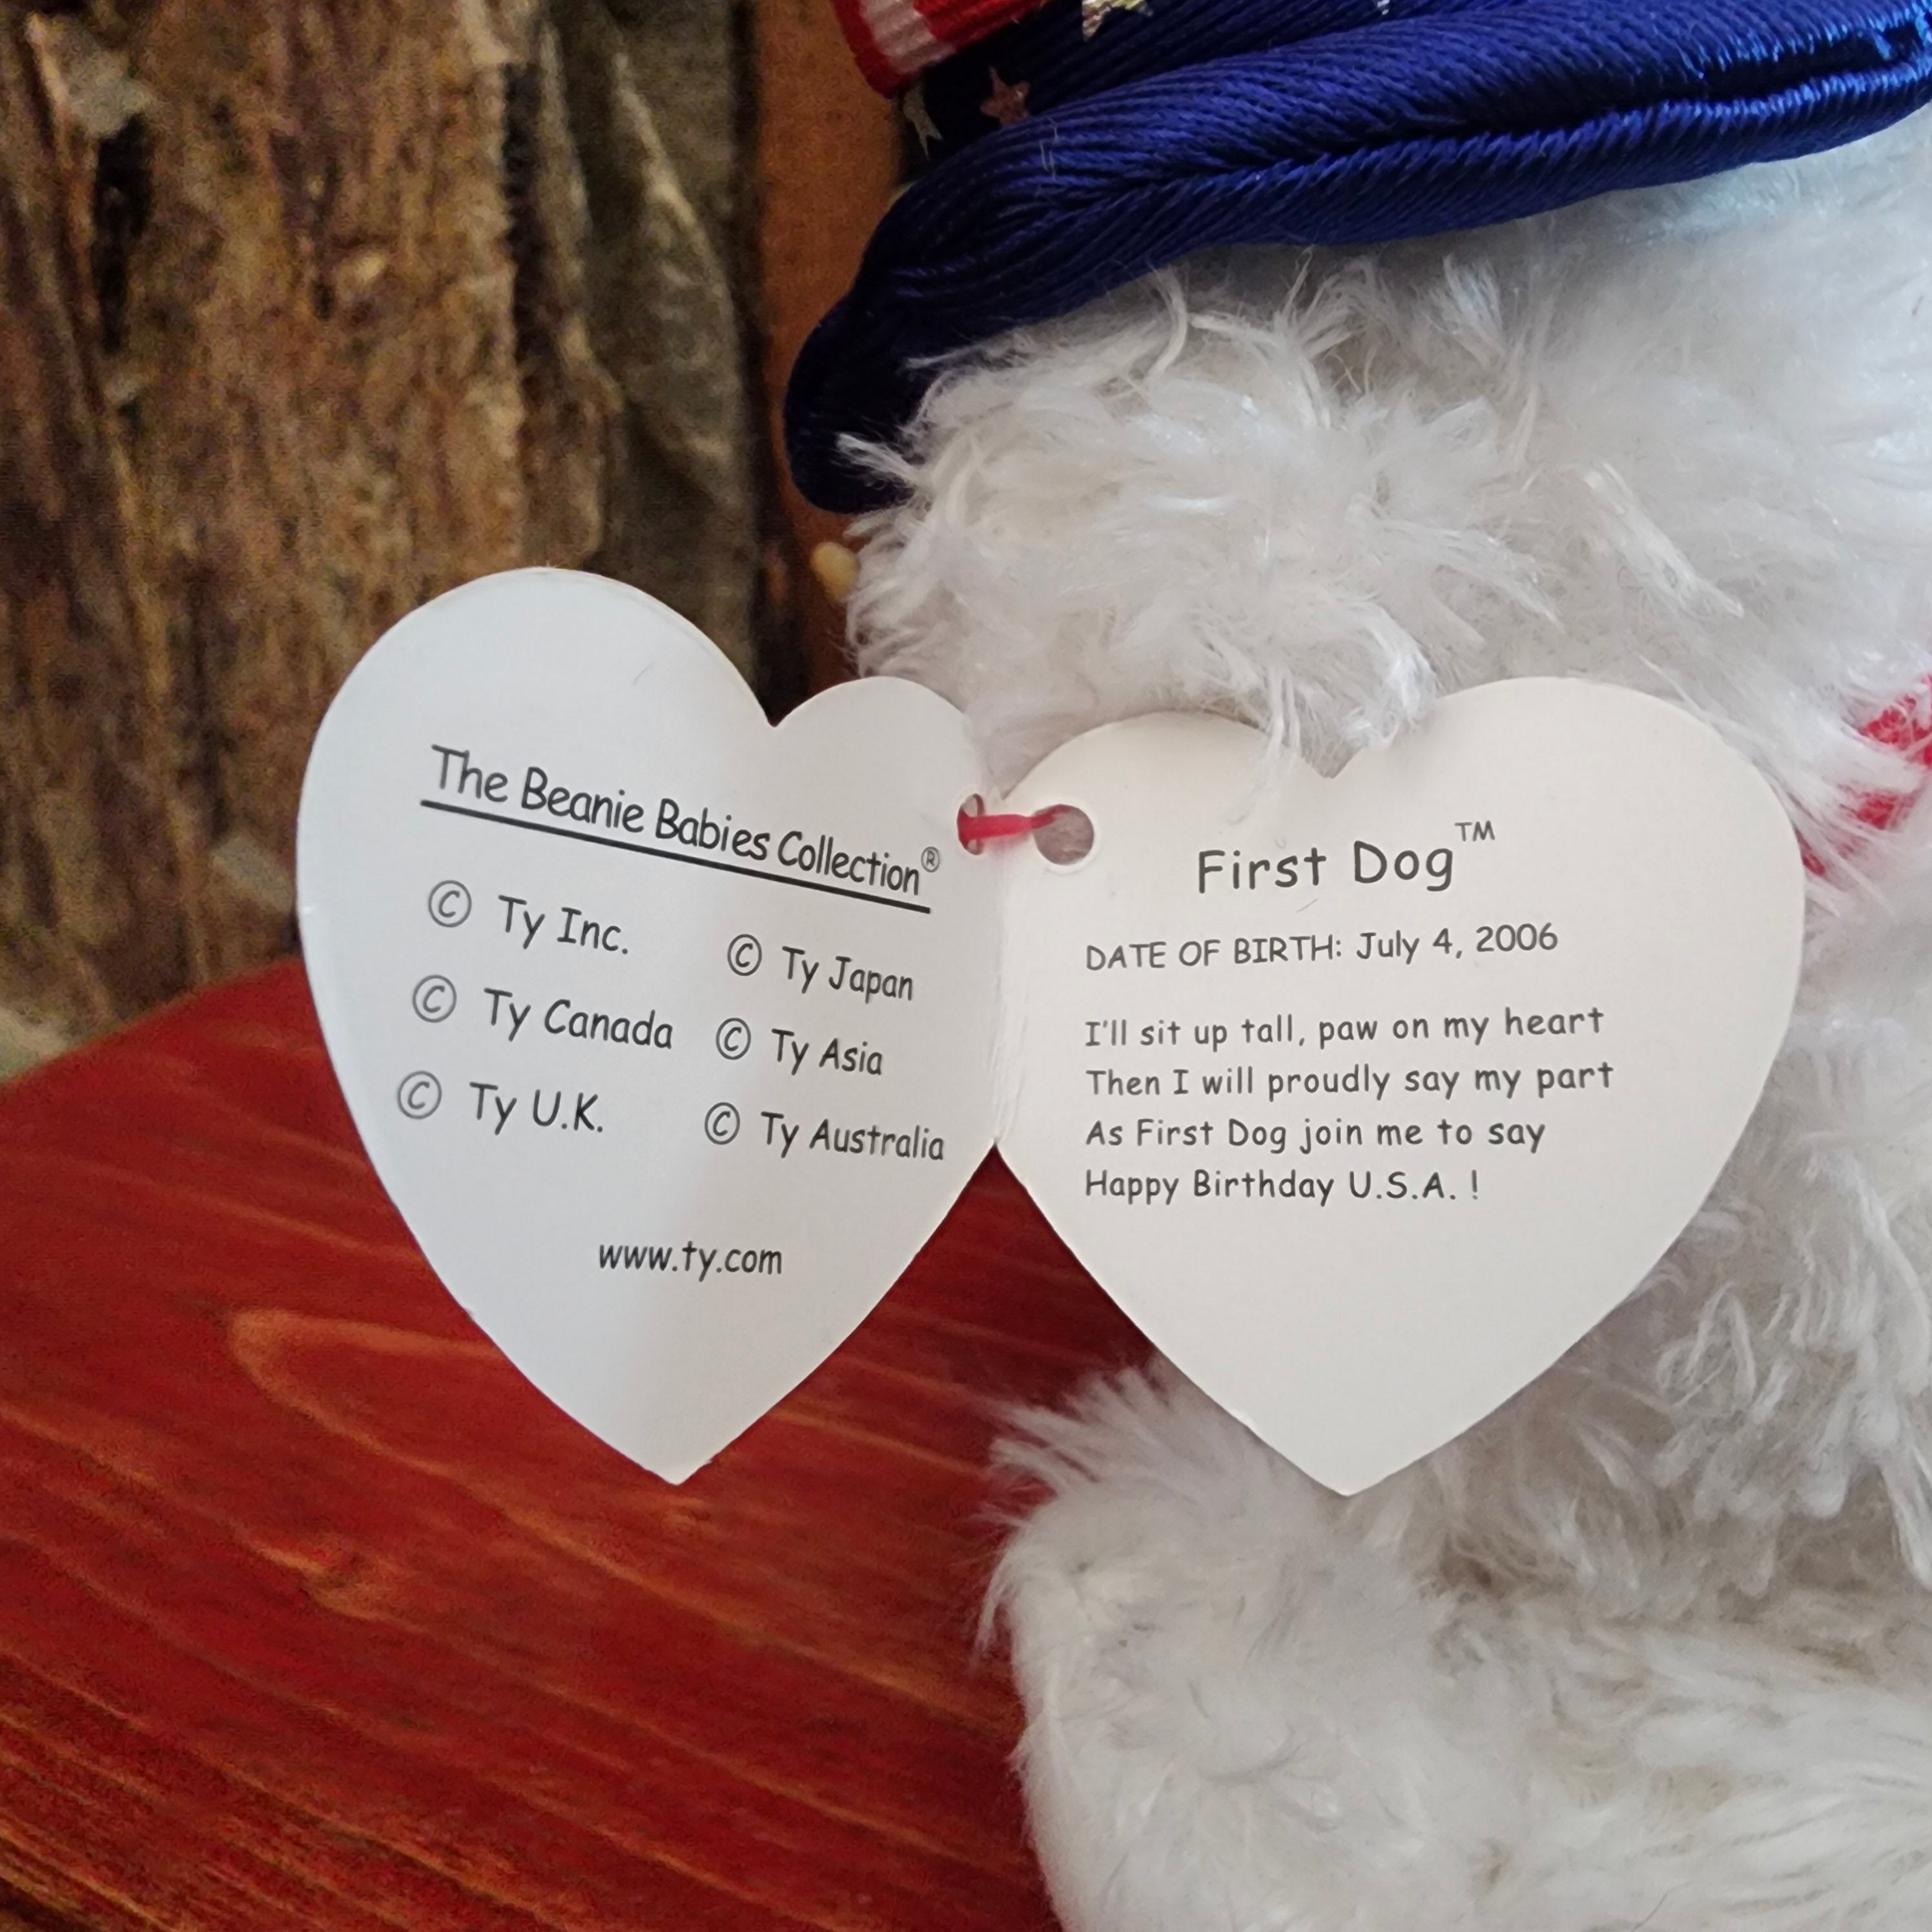 The Beanie Babies Collection®
© Ty Inc.
© Ty Canada
© Ty U.K.
© Ty Japan
© Ty Asia
© Ty Australia
www.ty.com
First Dog™
DATE OF BIRTH: July 4, 2006
I'll sit up tall, paw on my heart
Then I will proudly say my part
As First Dog join me to say
Happy Birthday U.S.A. !